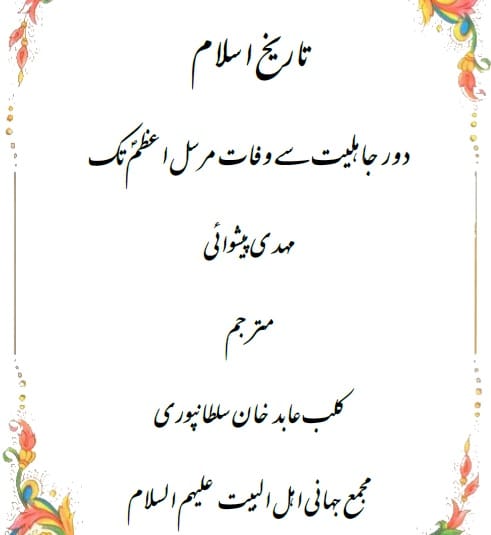 تاریخ اسلام
دور جاہلیت سے وفات مرسل اعظمؐ تک
مہدی پیشوائی
مترجم
کلب عابد خان سلطانپوری
مجمع جہانی اہل البیت علیہم السلام